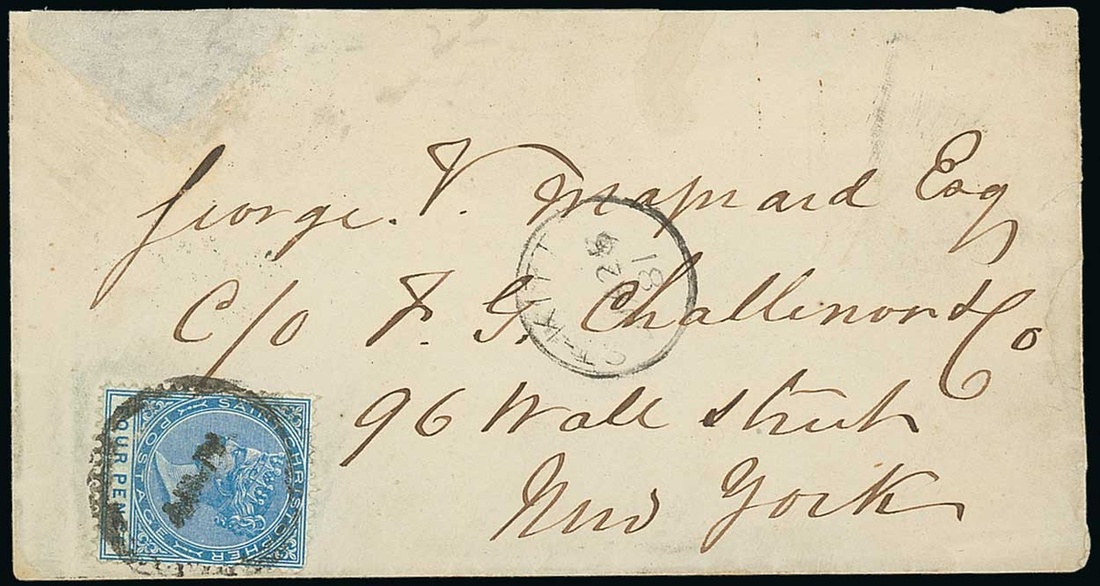 George. V. Maynard Esq
C/o F. G. Challenor & Co
96 Wall Street
New York
ST-KITTS
26
81
SAINT CHRISTOPHER
POSTAGE
FOUR PENCE